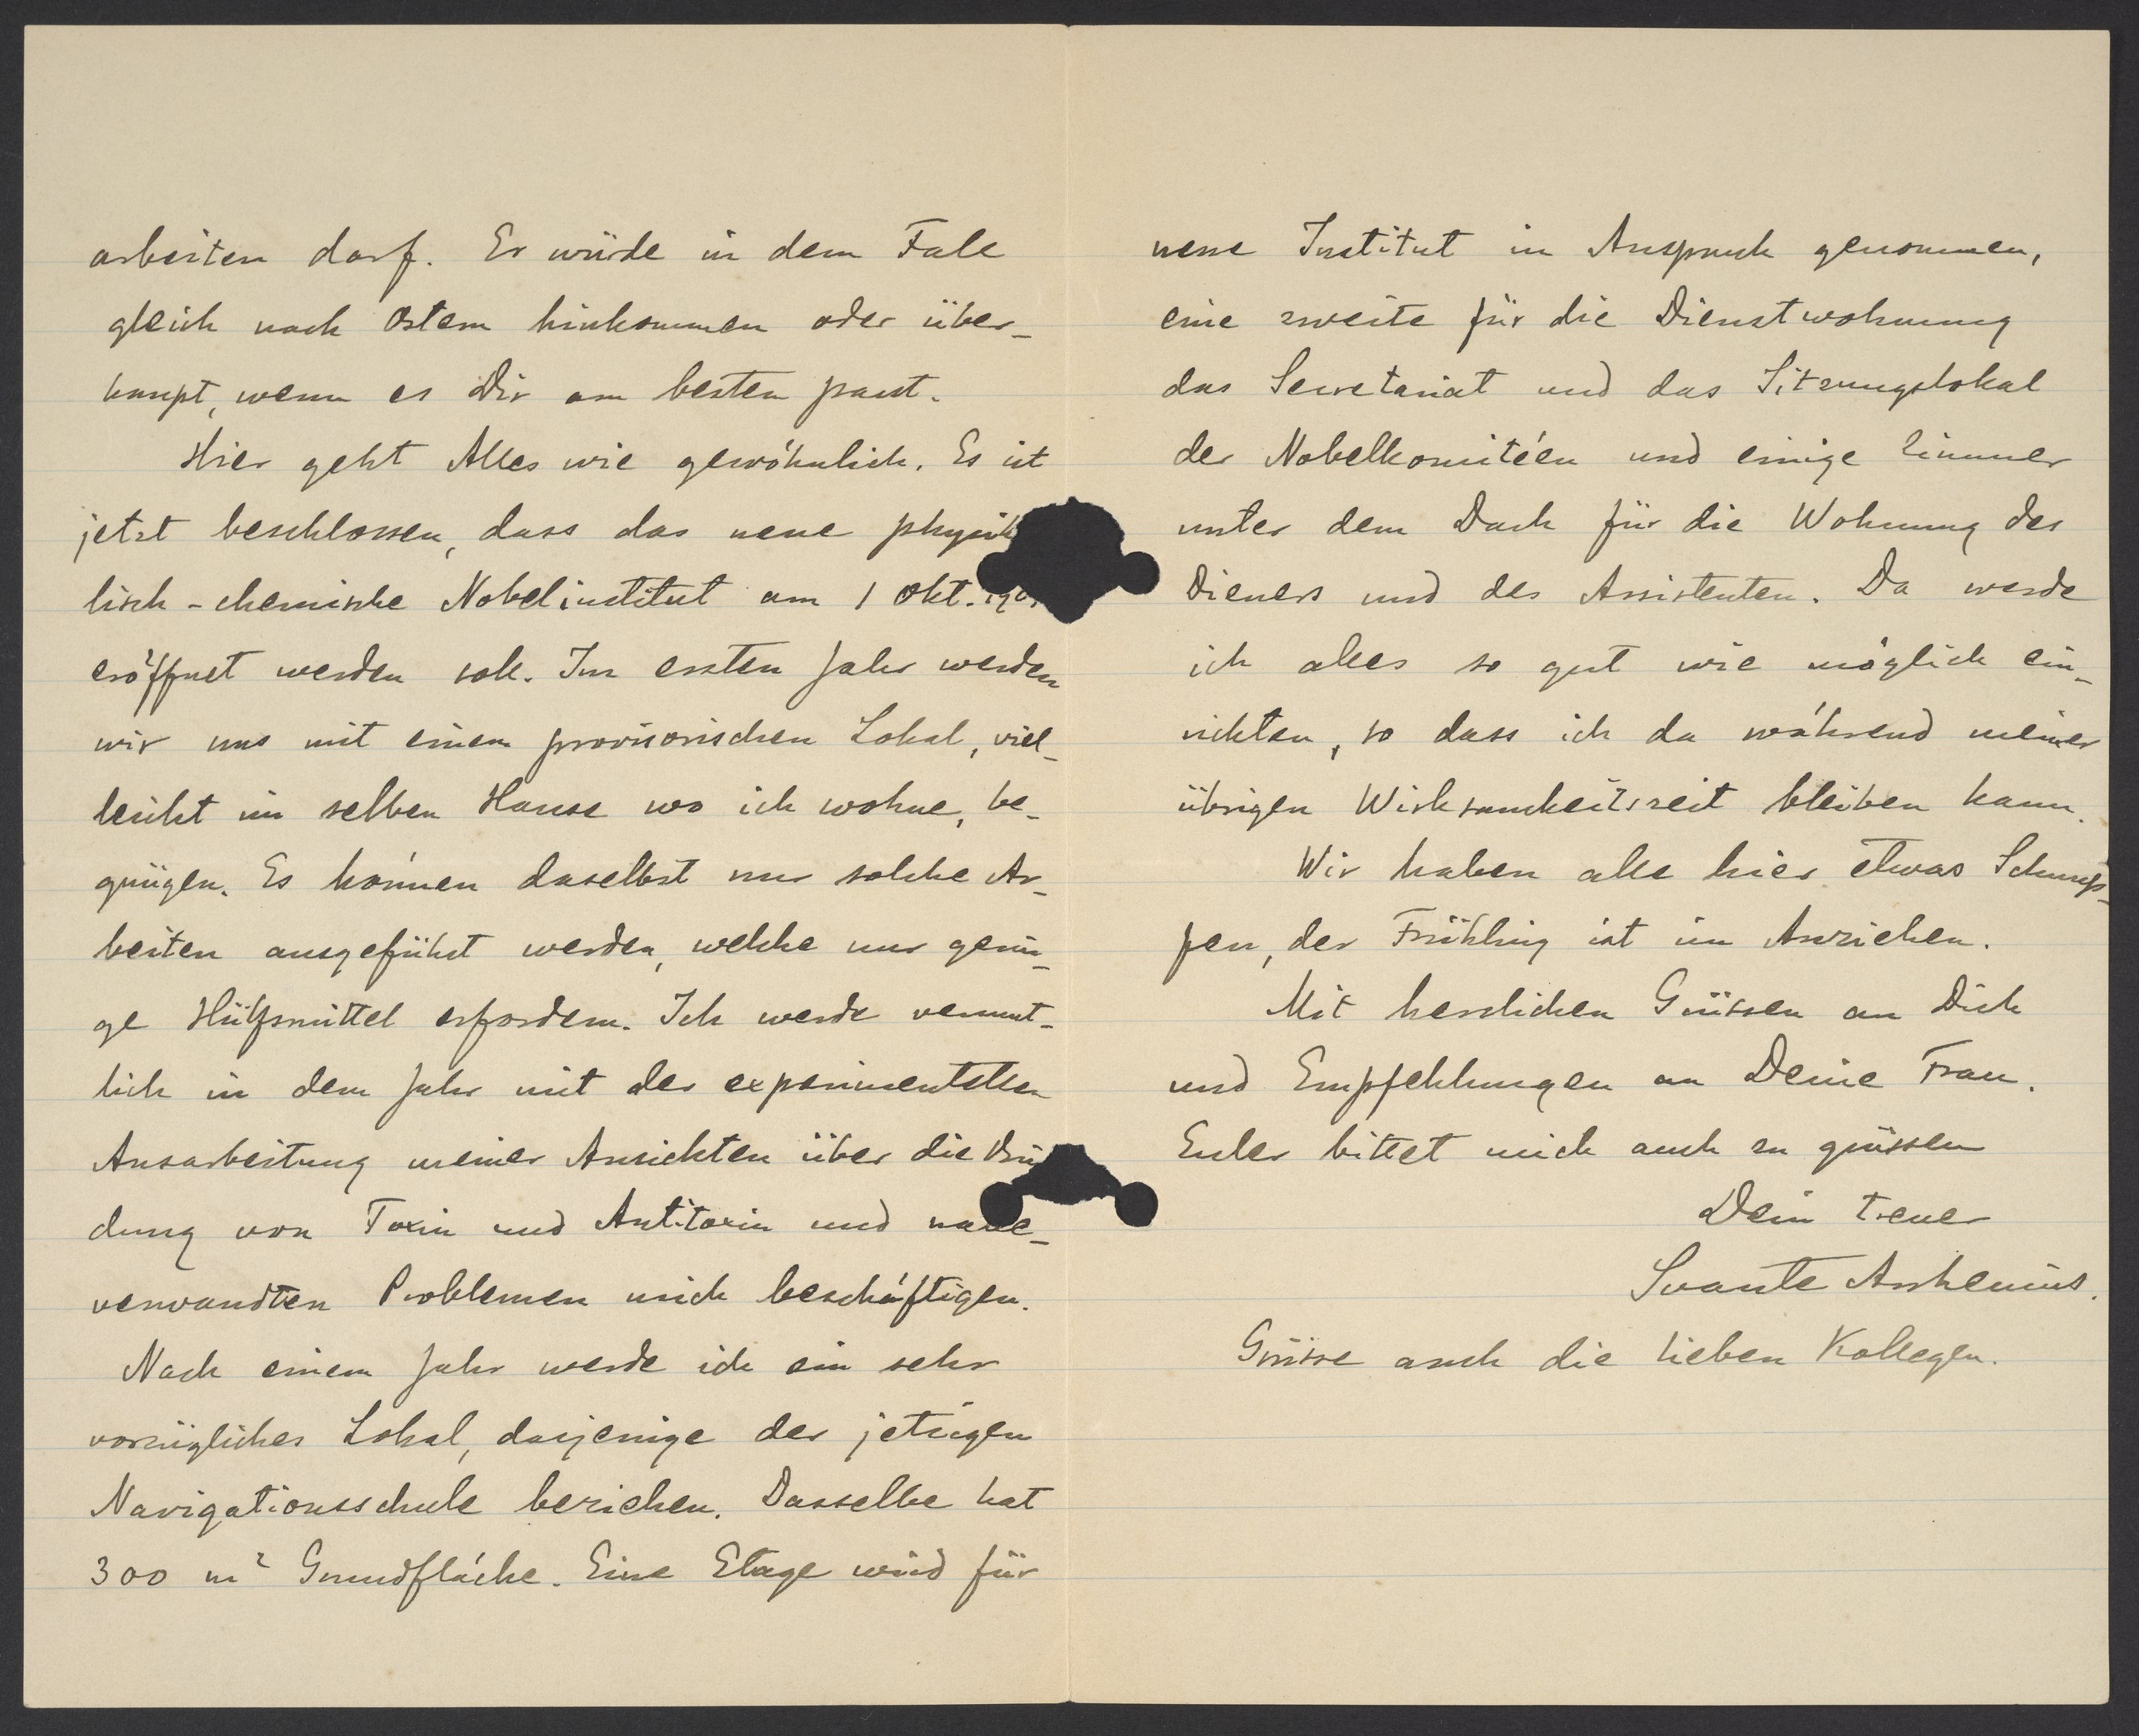 arbeiten darf. Er würde in dem Falle
gleich nach Ostern hinkommen oder über-
haupt, wenn es Dir am besten passt.
Hier geht Alles wie gewöhnlich. Es ist
jetzt beschlossen, dass das neue physik
lisch-chemische Nobelinstitut am 1 Okt. 190
eröffnet werden soll. Im ersten Jahr werden
wir uns mit einem provisorischen Lokal, viel-
leicht im selben Hause wo ich wohne, be-
gnügen. Es können daselbst nur solche Ar-
beiten ausgeführt werden, welche nur gerin-
ge Hülfsmittel erfordern. Ich werde vermut-
lich in dem Jahr mit der experimentellen
Ausarbeitung meiner Ansichten über die Bin
dung von Toxin und Antitoxin und nahe-
verwandten Problemen mich beschäftigen.
Nach einem Jahr werde ich ein sehr
vorzügliches Lokal, dasjenige der jetzigen
Navigationsschule beziehen. Dasselbe hat
300 m² Grundfläche. Eine Etage wird für
neue Institut in Anspruch genommen,
eine zweite für die Dienstwohnung
das Secretariat und das Sitzungslokal
der Nobelkomitéen und einige Zimmer
unter dem Dach für die Wohnung des
Dieners und des Assistenten. Da werde
ich alles so gut wie möglich ein-
richten, so dass ich da während meiner
übrigen Wirksamkeitszeit bleiben kann.
Wir haben alle hier etwas Schnup-
fen, der Frühling ist im Anziehen.
Mit herzlichen Grüssen an Dich
und Empfehlungen an Deine Frau.
Euler bittet mich auch zu grüssen
Dein treuer
Svante Arrhenius.
Grüsse auch die lieben Kollegen.